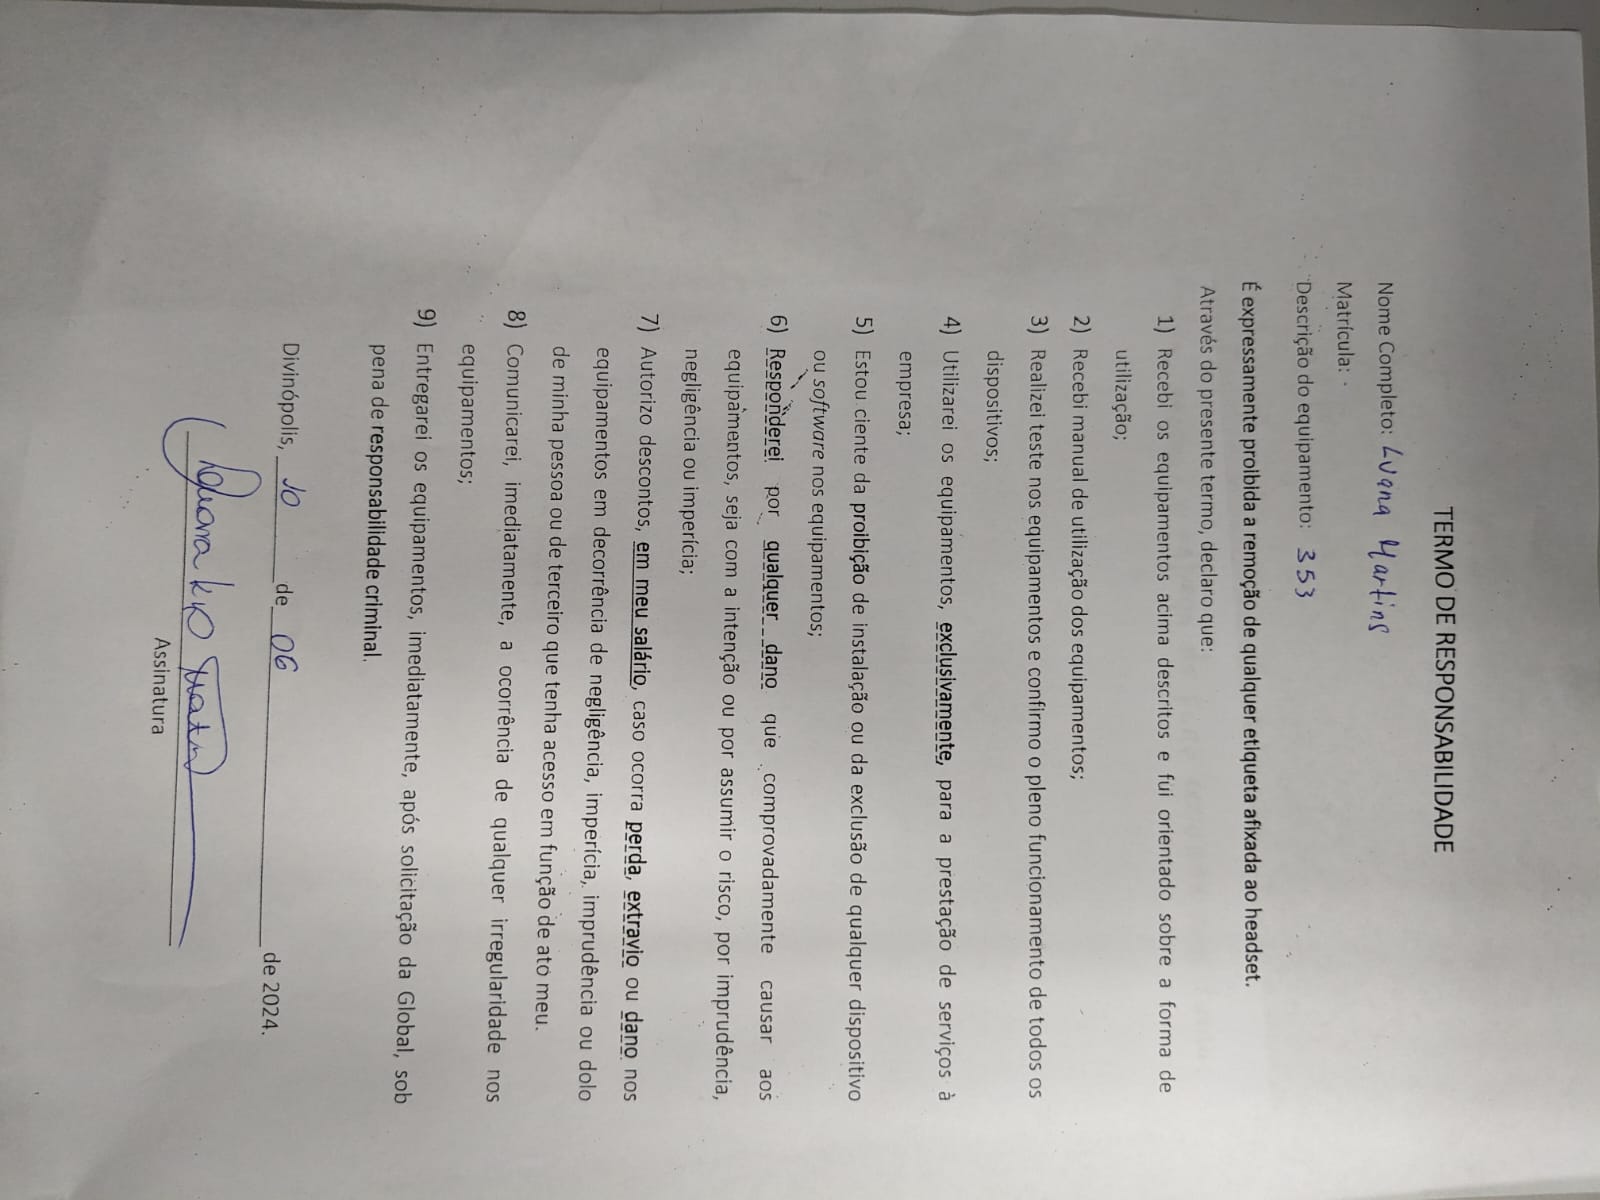 TERMO DE RESPONSABILIDADE
Nome Completo: Luana Martins
Matrícula:
Descrição do equipamento: 353
É expressamente proibida a remoção de qualquer etiqueta afixada ao headset.
Através do presente termo, declaro que:
1) Recebi os equipamentos acima descritos e fui orientado sobre a forma de
utilização;
2) Recebi manual de utilização dos equipamentos;
3) Realizei teste nos equipamentos e confirmo o pleno funcionamento de todos os
dispositivos;
4) Utilizarei os equipamentos, exclusivamente, para a prestação de serviços à
empresa;
5) Estou ciente da proibição de instalação ou da exclusão de qualquer dispositivo
ou software nos equipamentos;
6) Responderei por qualquer dano que comprovadamente causar aos
equipamentos, seja com a intenção ou por assumir o risco, por imprudência,
negligência ou imperícia;
7) Autorizo descontos, em meu salário, caso ocorra perda, extravio ou dano nos
equipamentos em decorrência de negligência, imperícia, imprudência ou dolo
de minha pessoa ou de terceiro que tenha acesso em função de ato meu.
8) Comunicarei, imediatamente, a ocorrência de qualquer irregularidade nos
equipamentos;
9) Entregarei os equipamentos, imediatamente, após solicitação da Global, sob
pena de responsabilidade criminal.
Divinópolis, 10 de 06 de 2024.
Assinatura